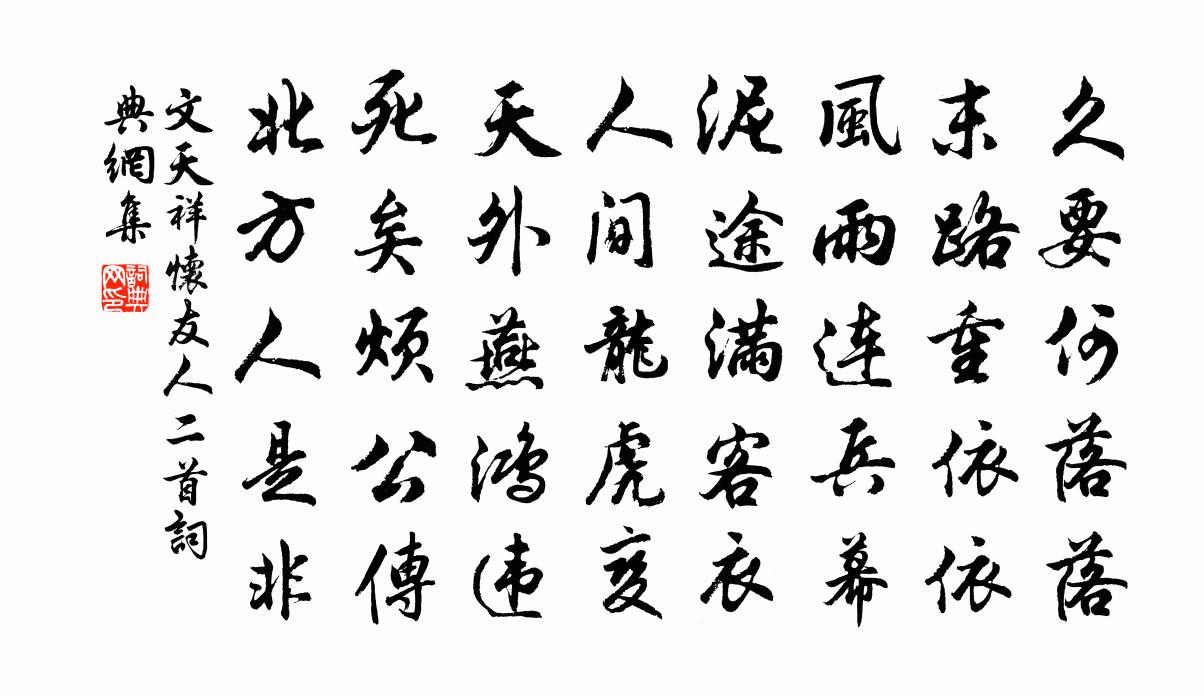 久要何落落
末路重依依
風雨連兵幕
泥途滿客衣
人間龍虎變
天外燕鴻违
死矣煩公傳
北方人是非
文天祥懷友人二首詞
典網集
詞典网印